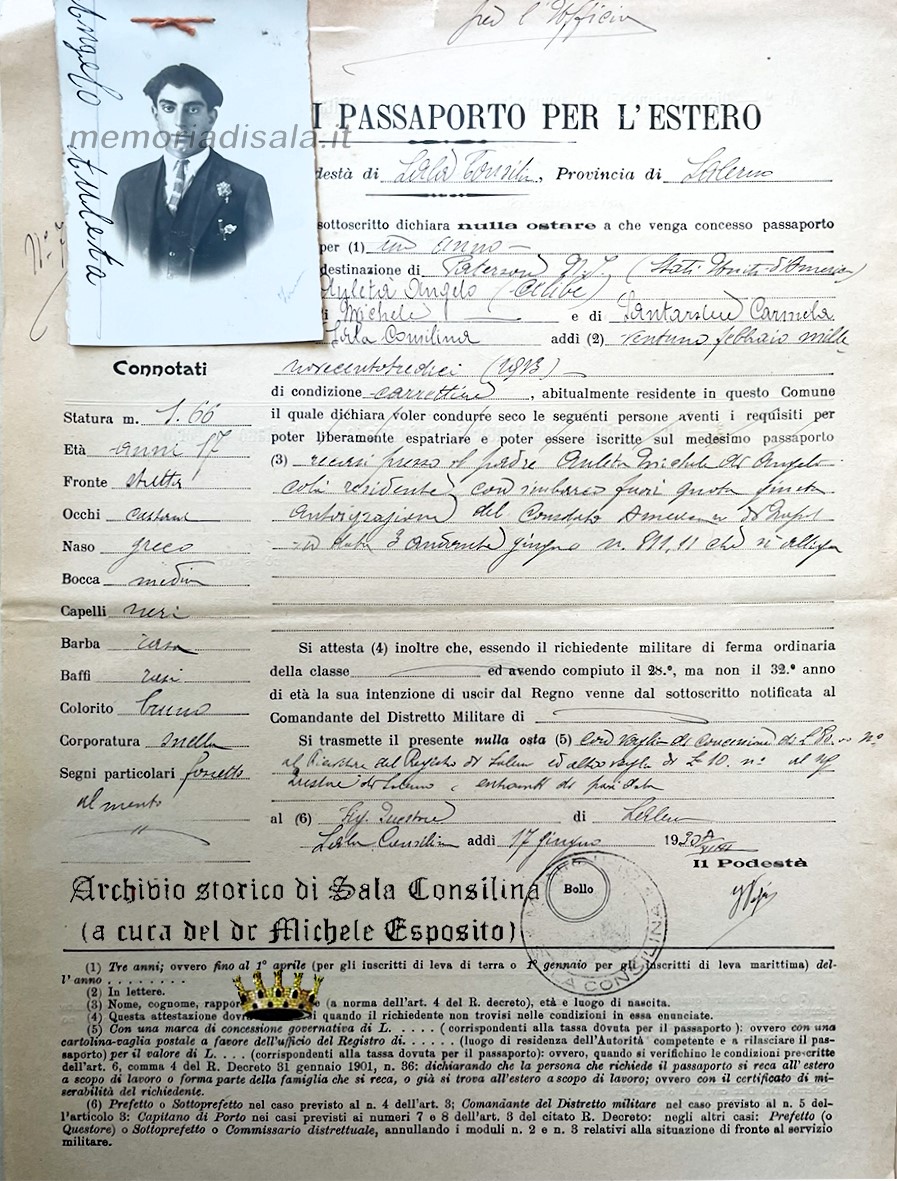 per l'Ufficio
Angelo Auleta
memoriadisala.it
I PASSAPORTO PER L'ESTERO
destà di Sala Consili, Provincia di Salerno
sottoscritto dichiara nulla ostare a che venga concesso passaporto
per (1) un anno
destinazione di Paterson N. J. (Stati Uniti d'America)
Auleta Angelo (celibe)
i Michele e di Santarsiere Carmela
Sala Consilina addì (2) ventuno febbraio mille
novecentotredici (1913)
Connotati
di condizione carrettiere, abitualmente residente in questo Comune
Statura m. 1.66
il quale dichiara voler condurre seco le seguenti persone aventi i requisiti per
poter liberamente espatriare e poter essere iscritte sul medesimo passaporto
Età anni 17
(3) recarsi presso il padre Auleta Michele di Angelo
Fronte stretta
colà residente, con imbarco fuori quota giusta
Occhi castani
del Consolato Americano di Napoli
Naso greco
in data 3 andante giugno n. 811,11 che si alliga
Bocca media
Capelli neri
Barba rasa
Si attesta (4) inoltre che, essendo il richiedente militare di ferma ordinaria
Baffi rasi
della classe ed avendo compiuto il 28.º, ma non il 32.º anno
di età la sua intenzione di uscir dal Regno venne dal sottoscritto notificata al
Colorito bruno
Comandante del Distretto Militare di
Corporatura snella
Si trasmette il presente nulla osta (5) con vaglia di concessione di L. nº
Segni particolari fossetta
al del Registro di Salerno ed altro vaglia di L 10. nº al
al mento
di Salerno, entrambi di pari data
al (6) Sig. Questore di Salerno
Sala Consilina addì 17 giugno 1930 A VIII
Il Podestà
Bollo
SALA CONSILINA
Archivio storico di Sala Consilina
(a cura del dr Michele Esposito)
(1) Tre anni; ovvero fino al 1º aprile (per gli inscritti di leva di terra o 1º gennaio per gli inscritti di leva marittima) del-
l'anno . . . . . . . .
(2) In lettere.
(3) Nome, cognome, rappor e (a norma dell'art. 4 del R. decreto), età e luogo di nascita.
(4) Questa attestazione dovrà si quando il richiedente non trovisi nelle condizioni in essa enunciate.
(5) Con una marca di concessione governativa di L. . . . . (corrispondenti alla tassa dovuta per il passaporto): ovvero con una
cartolina-vaglia postale a favore dell'ufficio del Registro di. . . . . . (luogo di residenza dell'Autorità competente e a rilasciare il pas-
saporto) per il valore di L. . . . (corrispondenti alla tassa dovuta per il passaporto): ovvero, quando si verifichino le condizioni prescritte
dell'art. 6, comma 4 del R. Decreto 31 gennaio 1901, n. 36: dichiarando che la persona che richiede il passaporto si reca all'estero
a scopo di lavoro o forma parte della famiglia che si reca, o già si trova all'estero a scopo di lavoro; ovvero con il certificato di mi-
serabilità del richiedente.
(6) Prefetto o Sottoprefetto nel caso previsto al n. 4 dell'art. 3; Comandante del Distretto militare nel caso previsto al n. 5 del-
l'articolo 3: Capitano di Porto nei casi previsti ai numeri 7 e 8 dell'art. 3 del citato R. Decreto: negli altri casi: Prefetto (o
Questore) o Sottoprefetto o Commissario distrettuale, annullando i moduli n. 2 e n. 3 relativi alla situazione di fronte al servizio
militare.